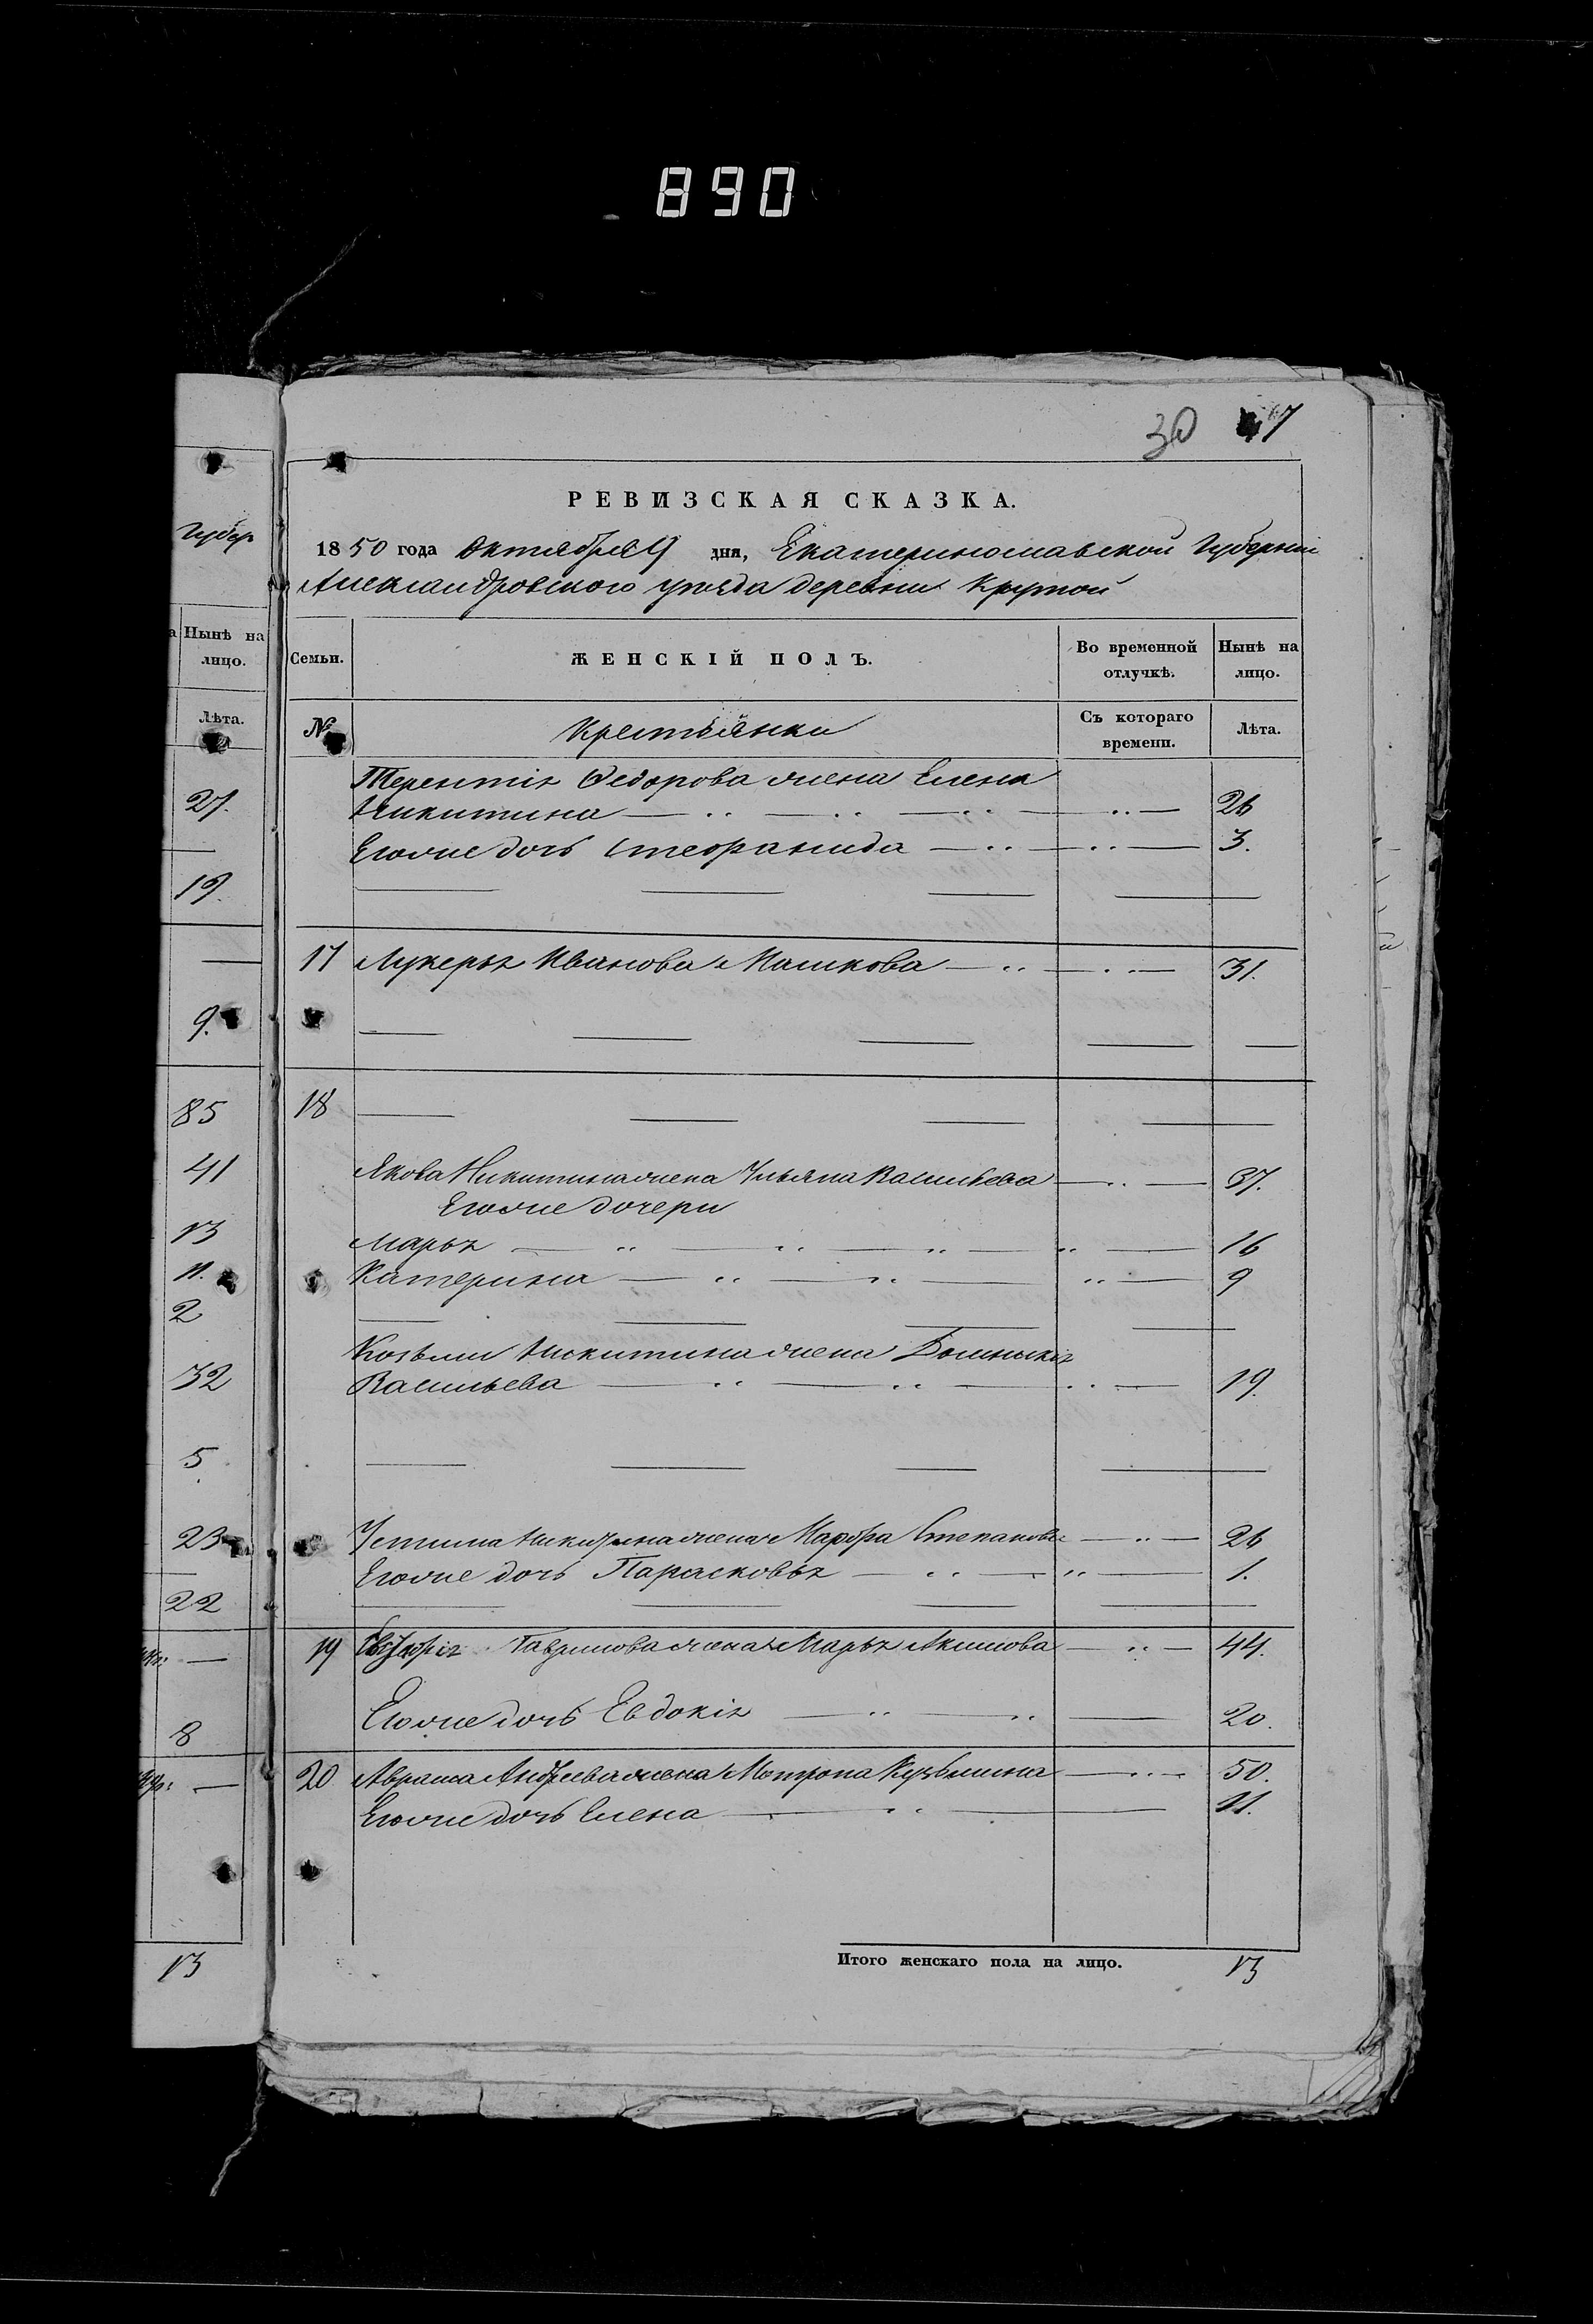 890
30 47
Губер
РЕВИЗСКАЯ СКАЗКА.
1850 года Октября 9 дня, Екатеринославской Губернии
Александровского уезда деревни Крутой
Нынѣ на лицо.
Лѣта.
27.
19.
9.
85
41
13
11.
2
32
5
23
22
8
13
Семьи. ЖЕНСКІЙ ПОЛЪ. Во временной отлучкѣ. Нынѣ на лицо.
№ Крестьянки Съ котораго времени. Лѣта.
Терентия Федорова жена Елена
Никитина 26
Егоже дочь Стефанида 3.
17 Лукерья Иванова Машкова 31.
18
Якова Никитина жена Ульяна Васильева 37.
Егоже дочери
Марья 16
Катерина 9
Козьмы Никитина жена
Васильева 19.
Устина Никитина жена Марфа Степанова 26
Егоже дочь Парасковья 1.
19 Гаврилова жена Марья Акимова 44.
Егоже дочь Евдокія 20.
20 Аврама Андреева жена Мотрона Кузьмина 50.
Егоже дочь Елена 11.
Итого женскаго пола на лицо. 13